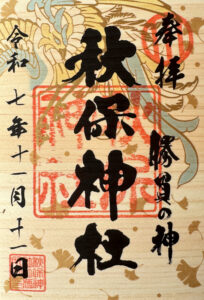 奉拝
勝負の神
秋保神社
令和七年十一月十一日